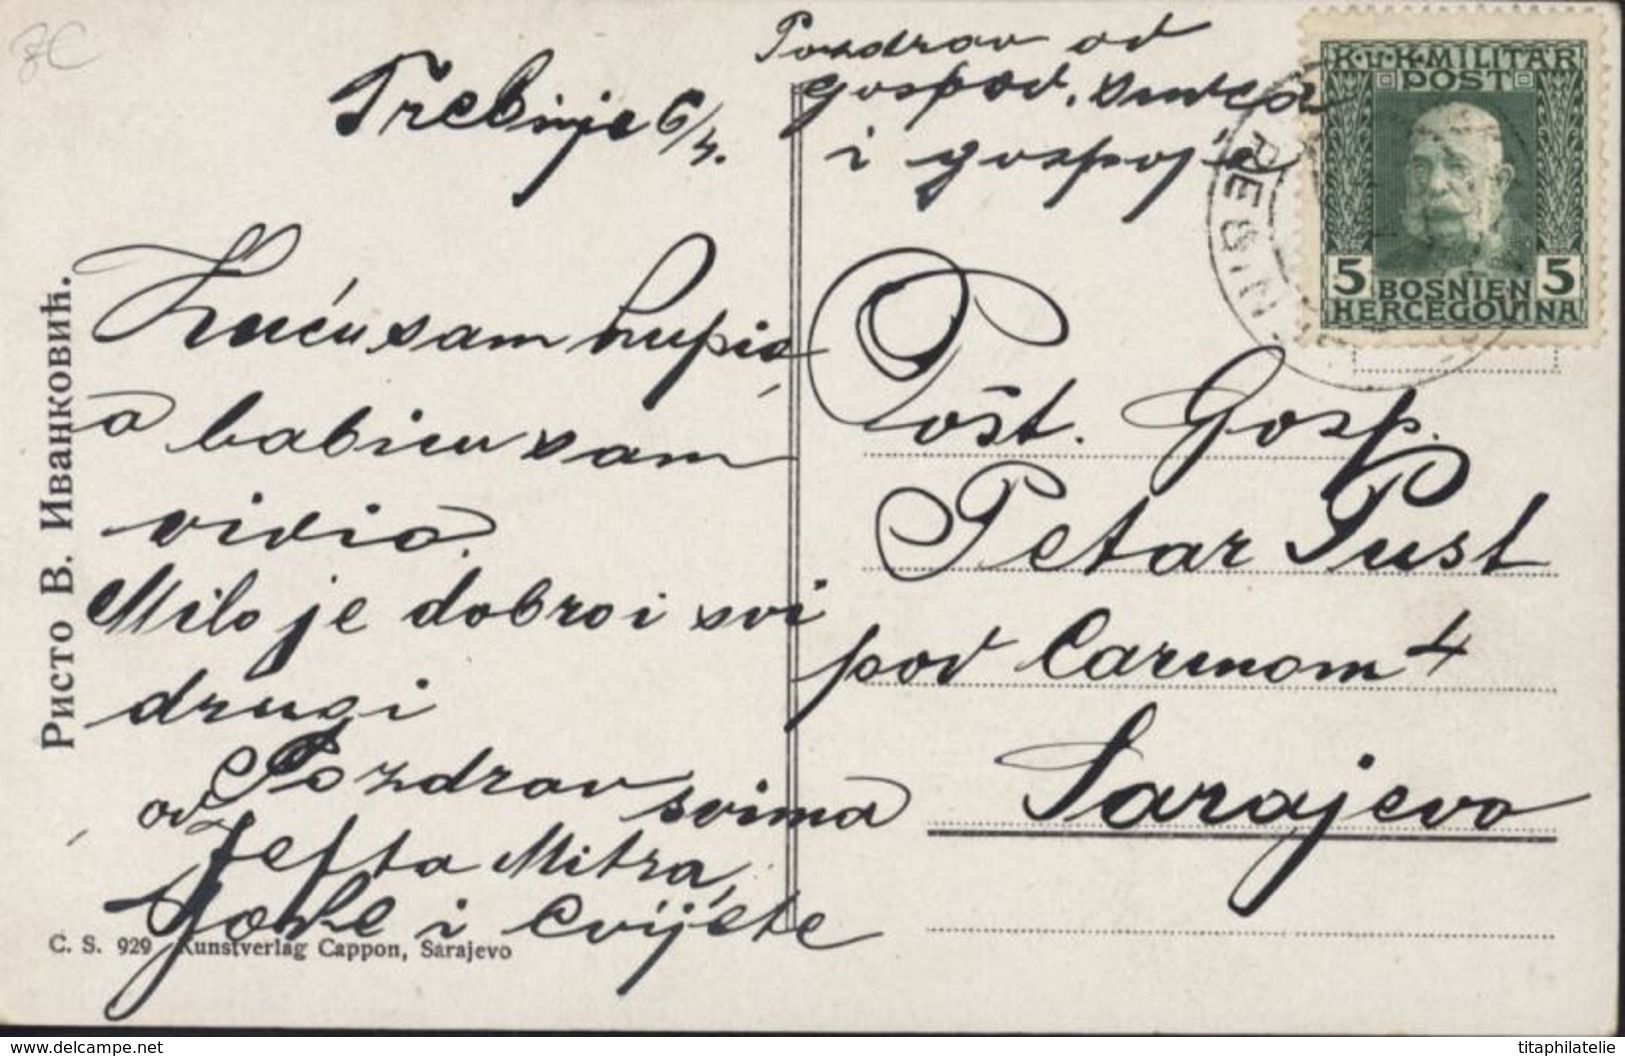 Pozdrav od
gospod.
i gospoje
Trebinje 6/4.
K.u.K. MILITÄR
POST
5 5
BOSNIEN
HERCEGOVINA
Kuću sam kupio
a babicu sam
vidio.
Milo je dobro i svi
drugi
Pozdrav svima
od Jefta Mitra,
Joke i Cvijete
Pošt. Gosp.
Petar Pust
pod Carinom 4
Sarajevo
Ристо В. Иванковић.
C. S. 929 Kunstverlag Cappon, Sarajevo
www.delcampe.net
titaphilatelie